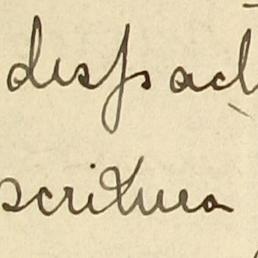 despac
scritura